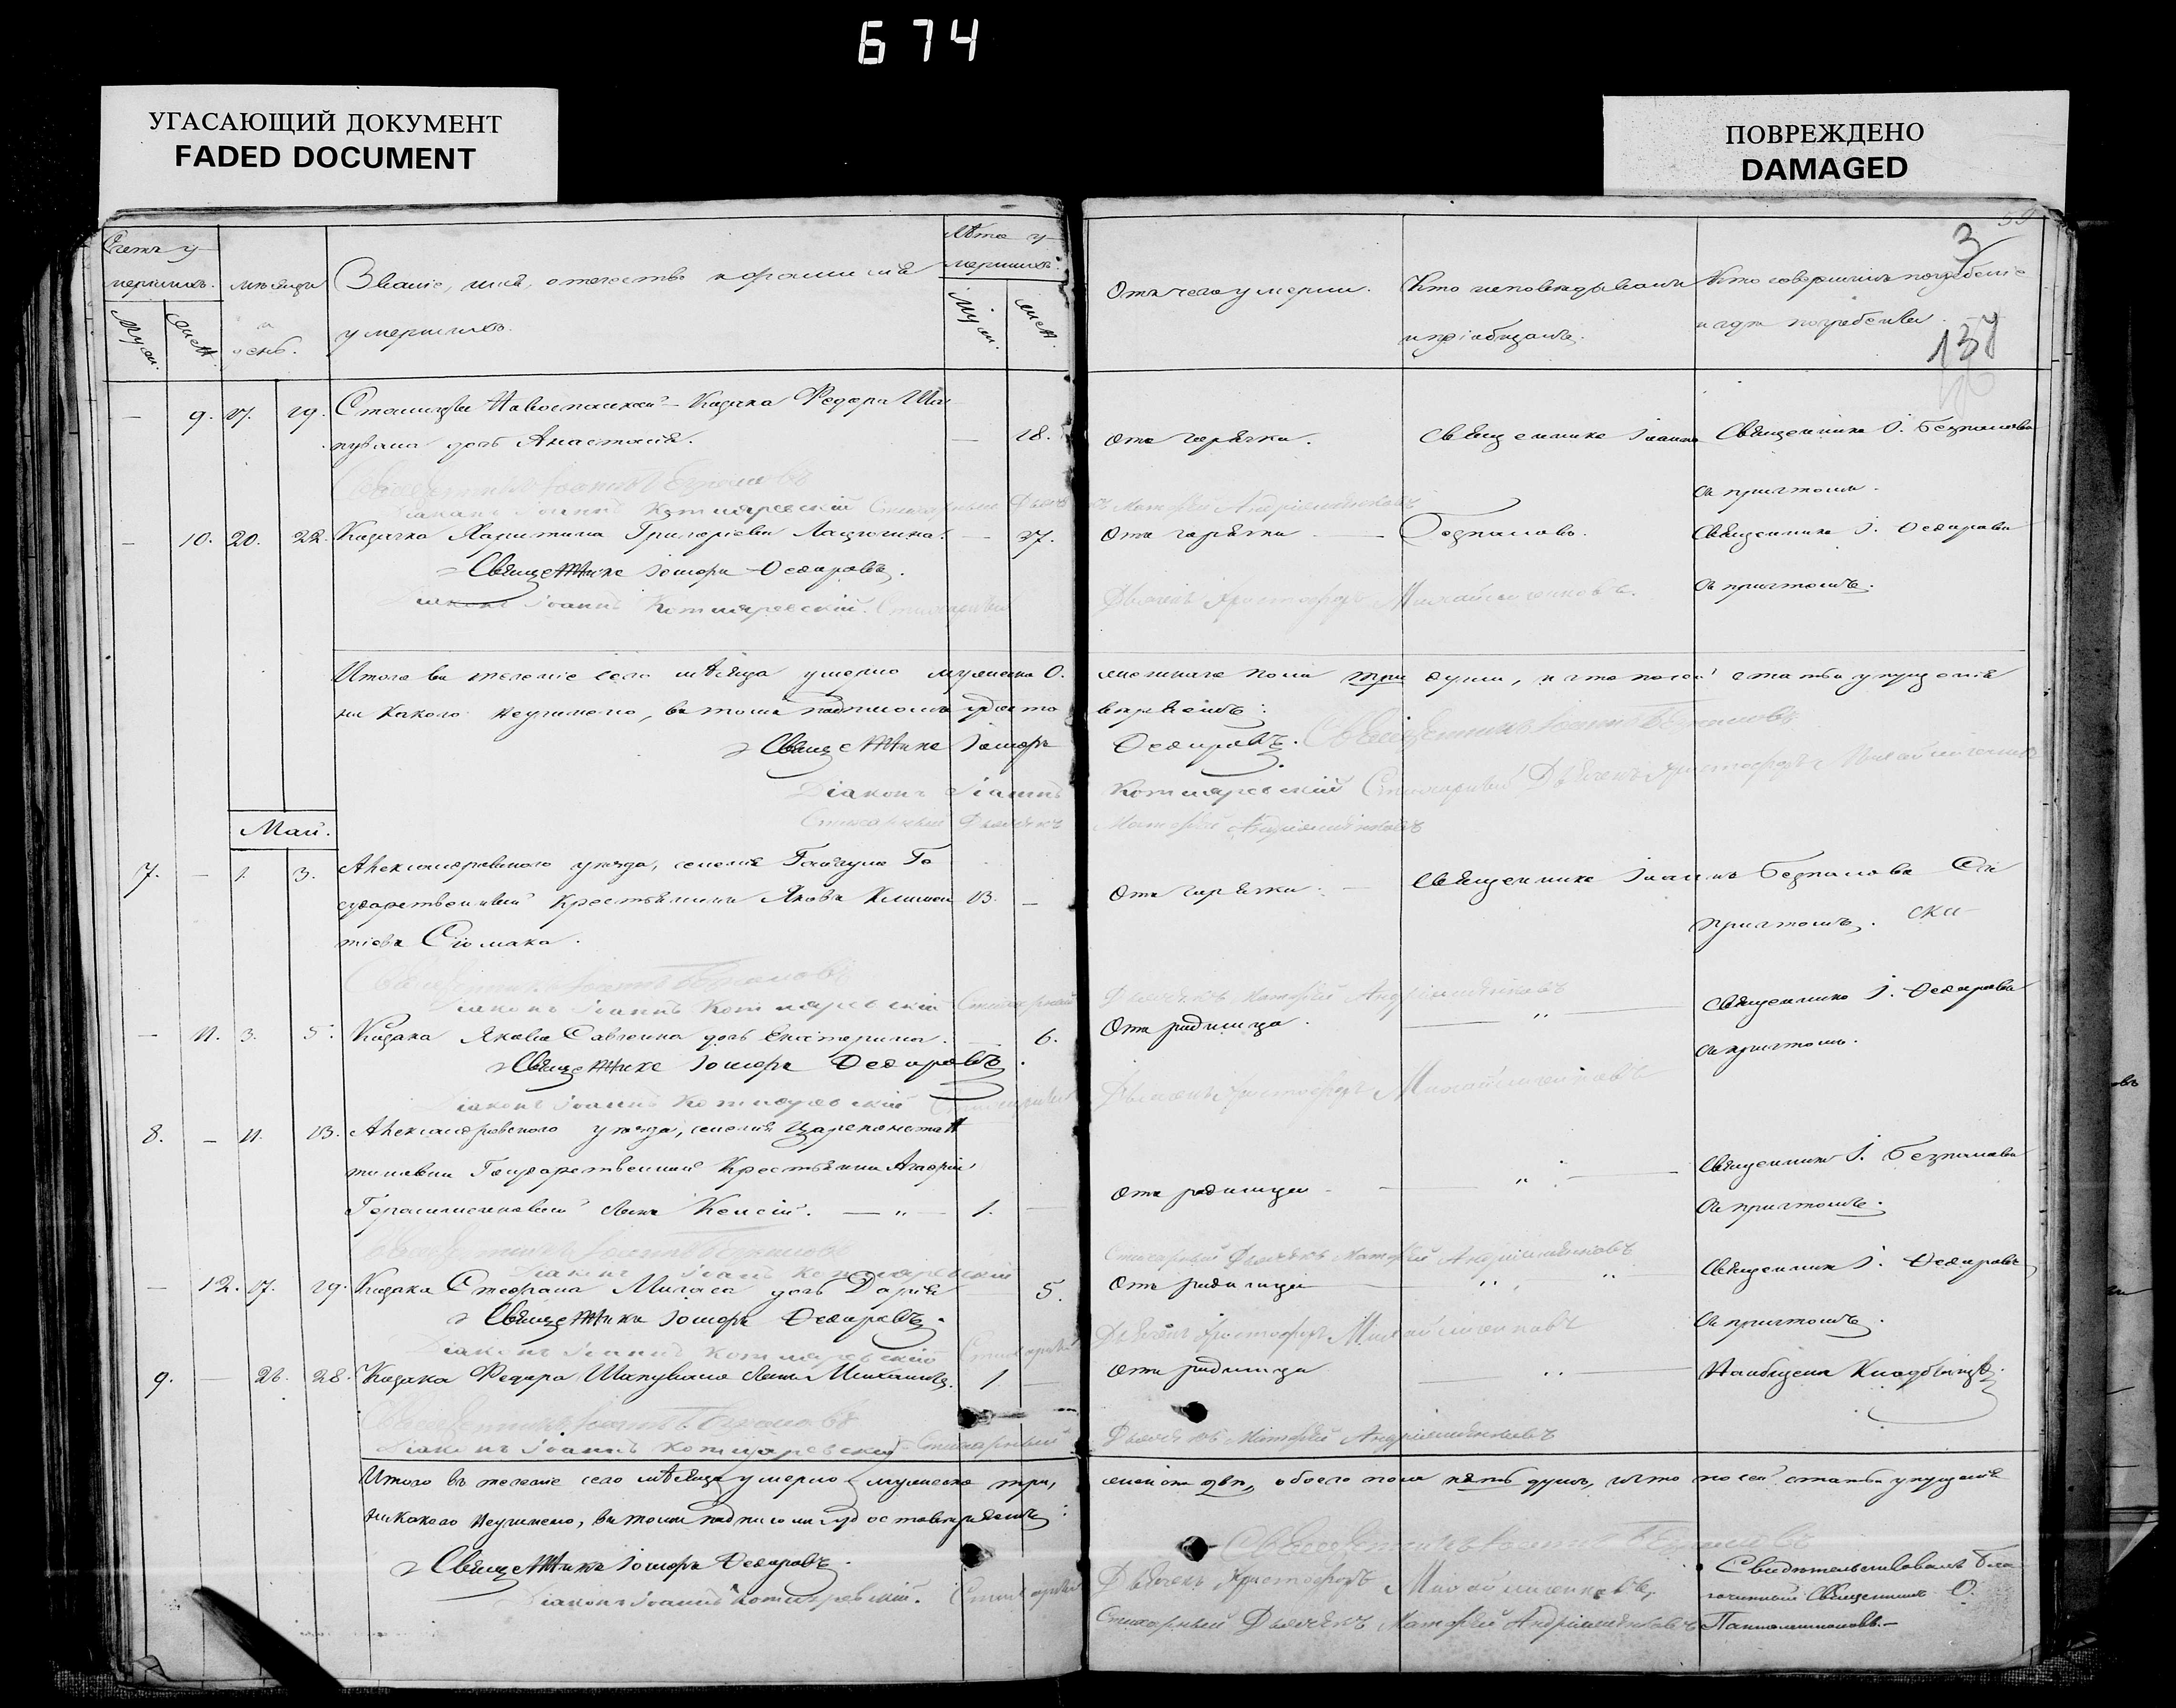 674
УГАСАЮЩИЙ ДОКУМЕНТ
FADED DOCUMENT
ПОВРЕЖДЕНО
DAMAGED
3
137
Счетъ у-
мершихъ.
Муж.
женс.
мѣсяцъ
и
день.
Званіе, имя, отечество и фамилія
умершихъ.
Лѣта у-
мершихъ.
Муж.
женс.
Отъ чего умерли.
Кто исповѣдывалъ
и пріобщалъ.
Кто совершилъ погребеніе
и гдѣ погребены.
— 9. 27. 29. Станицы Новоспасской Козака Федора Ша
пувала дочь Анастасія. — 28. Отъ горячки. Священникъ Іоаннъ Священникъ І. Безпаловъ
съ причтомъ.
Священникъ Іоаннъ Безпаловъ
Діаконъ Іоаннъ Котляревскій Стихарный Дьячекъ Матфей Андріяшенковъ
— 10. 20. 22. Козачка Харитина Григоріева — 27. Отъ горячки — Безпаловъ. Священникъ І. Федоровъ
съ причтомъ.
Священникъ Федоровъ.
Діаконъ Іоаннъ Котляревскій. Стихарный Дьячекъ Христофоръ Михайличенковъ.
Итого въ теченіе сего мѣсяца умерло мужеска 0. женскаго пола три души, и что по сей статьи упущенія
ни какого неучинено, въ томъ подписомъ удосто вѣряемъ:
Священникъ Федоровъ. Священникъ Іоаннъ Безпаловъ
Діаконъ Іоаннъ Котляревскій Стихарный Дьячекъ Христофоръ Михайличенковъ
Стихарный Дьячекъ Матфей Андріяшенковъ
Май.
7. — 1. 3. Александровскаго уѣзда, селенія Гайчула Го
сударственный Крестьянинъ Яковъ Климен
тіевъ Сіомака. — Отъ горячки. — Священникъ Іоаннъ Безпаловъ Съ
причтомъ.
Священникъ Іоаннъ Безпаловъ
Діаконъ Іоаннъ Котляревскій Стихарный Дьячекъ Матфей Андріяшенковъ
— 11. 3. 5. Козака Якова дочь Екатерина. 6. Отъ родимца. — „ — Священникъ І. Федоровъ
съ причтомъ.
Священникъ Федоровъ.
Діаконъ Іоаннъ Котляревскій Стихарный Дьячекъ Христофоръ Михайличенковъ
8. — 11. 13. Александровскаго уѣзда, селенія Цареконстан
тиновки Государственной Крестьянки Агафіи
Герасименковой сынъ — „ — 1. — Отъ родимца — „ — Священникъ І. Безпаловъ
Съ причтомъ.
Священникъ Іоаннъ Безпаловъ
Діаконъ Іоаннъ Котляревскій Стихарный Дьячекъ Матфей Андріяшенковъ
— 12. 27. 29. Козака Стефана дочь Дарія 5. Отъ родимца — „ „ Священникъ І. Федоровъ
съ причтомъ.
Священникъ Федоровъ.
Діаконъ Іоаннъ Котляревскій Стихарный Дьячекъ Христофоръ Михайличенковъ
9. — 26. 28. Козака Федора Шапувала сынъ Михаилъ. 1 — Отъ родимца — „ — На общемъ Кладбищѣ.
Священникъ Іоаннъ Безпаловъ
Діаконъ Іоаннъ Котляревскій Стихарный Дьячекъ Матфей Андріяшенковъ
Итого въ теченіе сего мѣсяца умерло мужеска три, женска двѣ, обоего пола пять душъ, и что по сей статьи упущенія
никакого неучинено, въ томъ подписомъ удостовѣряемъ:
Священникъ Іоаннъ Безпаловъ
Священникъ Федоровъ.
Діаконъ Іоаннъ Котляревскій. Стихарный Дьячекъ Христофоръ Михайличенковъ,
Стихарный Дьячекъ Матфей Андріяшенковъ
Свидѣтельствовалъ Бла
гочинный Священникъ
Пантелеимоновъ.